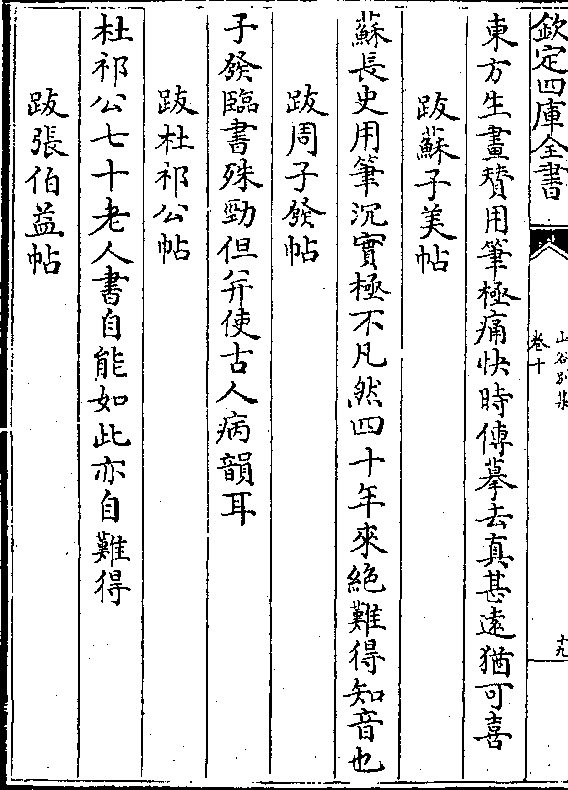 欽定四庫全書
山谷别集
卷十
十九
東方生畫賛用筆極痛快時傳摹去真甚遠猶可喜
跋蘇子美帖
蘇長史用筆沉實極不凡然四十年來絶難得知音也
跋周子發帖
子發臨書殊勁但并使古人病韻耳
跋杜祁公帖
杜祁公七十老人書自能如此亦自難得
跋張伯益帖